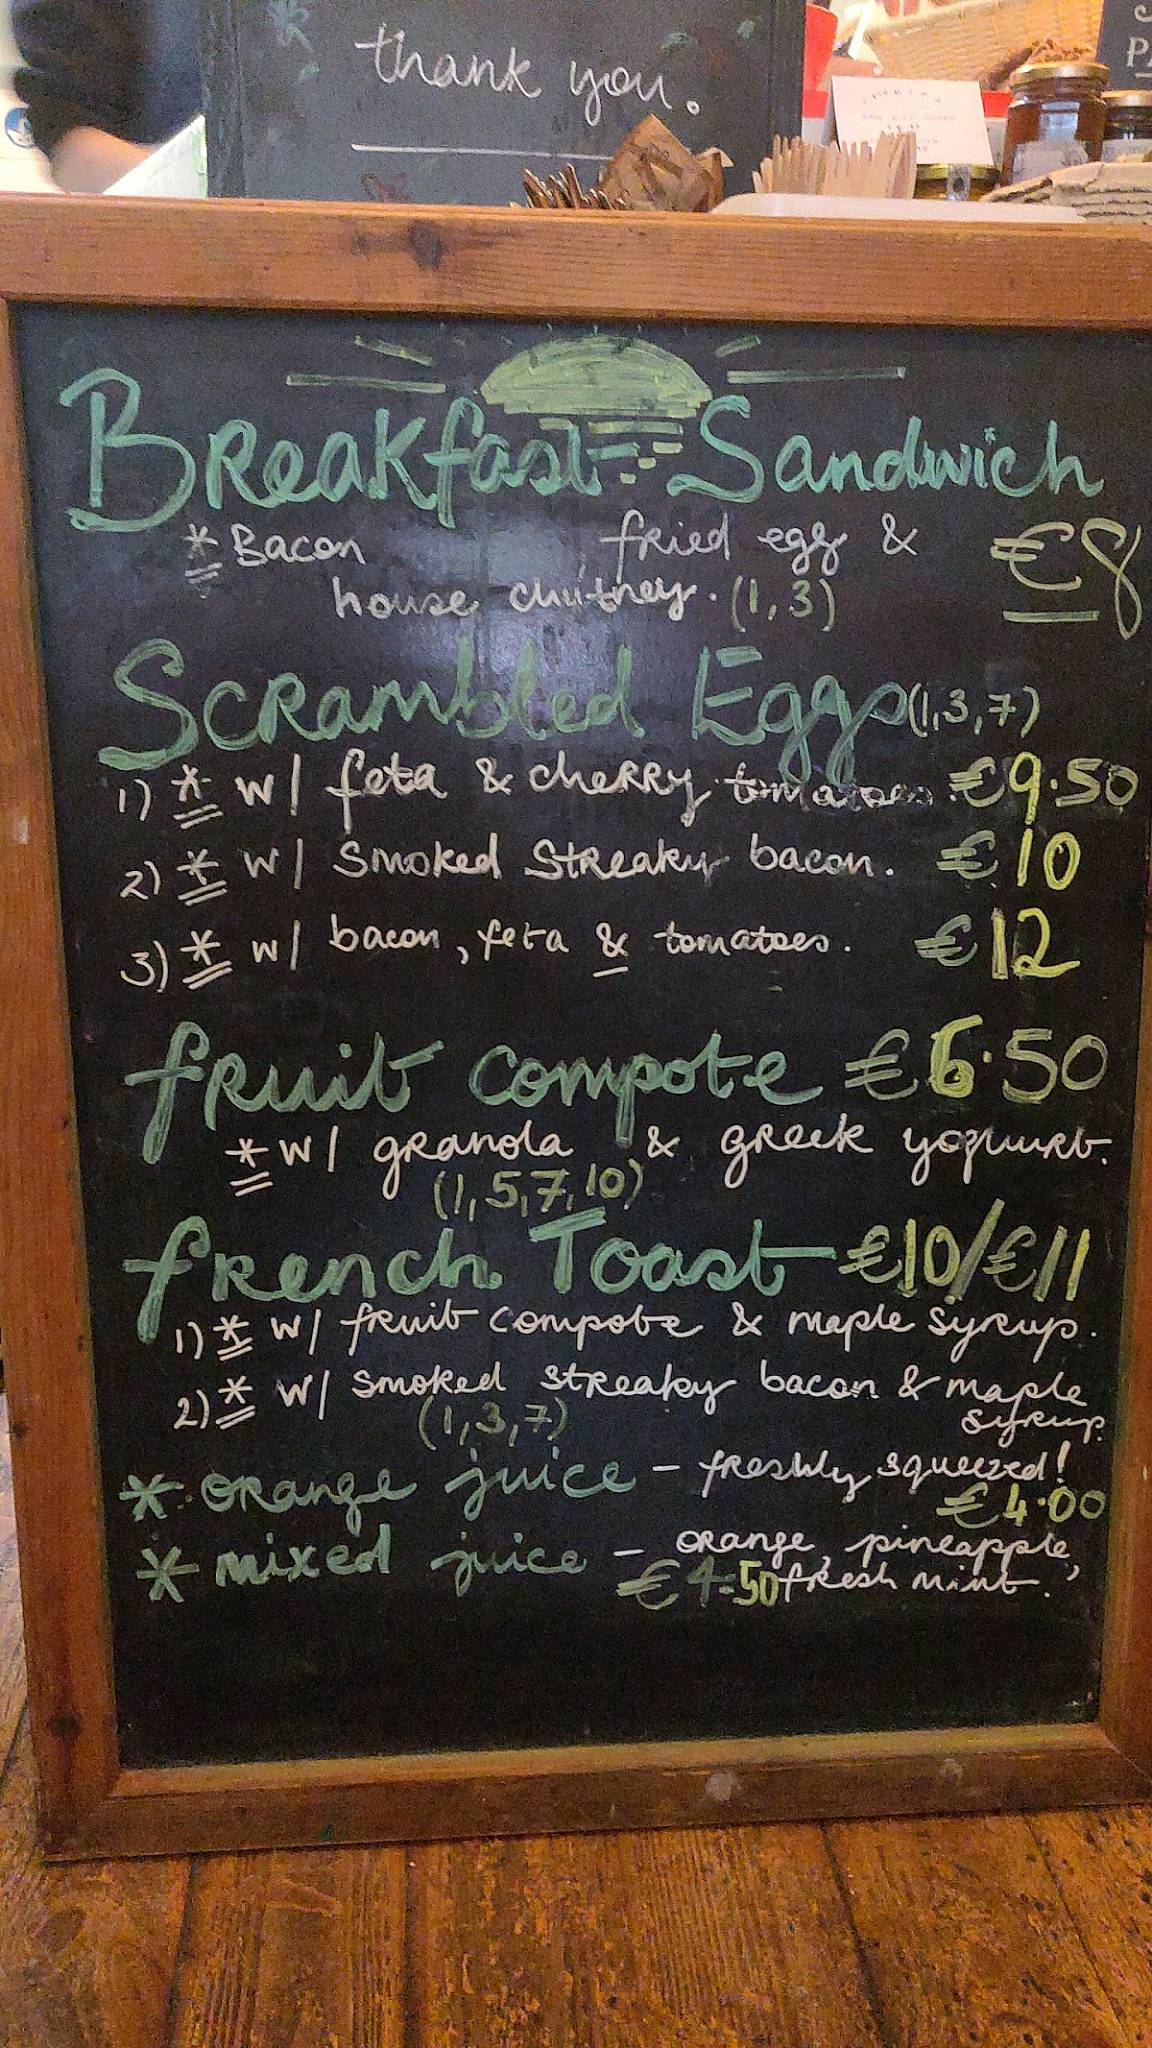 thank you.
Breakfast Sandwich
* Bacon fried egg & €8
house chutney. (1,3)
Scrambled Eggs (1,3,7)
1) * w/ feta & cherry tomatoes. €9.50
2) * w/ smoked streaky bacon. €10
3) * w/ bacon, feta & tomatoes. €12
fruit compote €6.50
* w/ granola & greek yoghurt.
(1,5,7,10)
french Toast €10/€11
1) * w/ fruit compote & maple syrup.
2) * w/ smoked streaky bacon & maple
syrup.
(1,3,7)
* orange juice - freshly squeezed!
€4.00
* mixed juice - orange, pineapple,
€4.50 fresh mint.